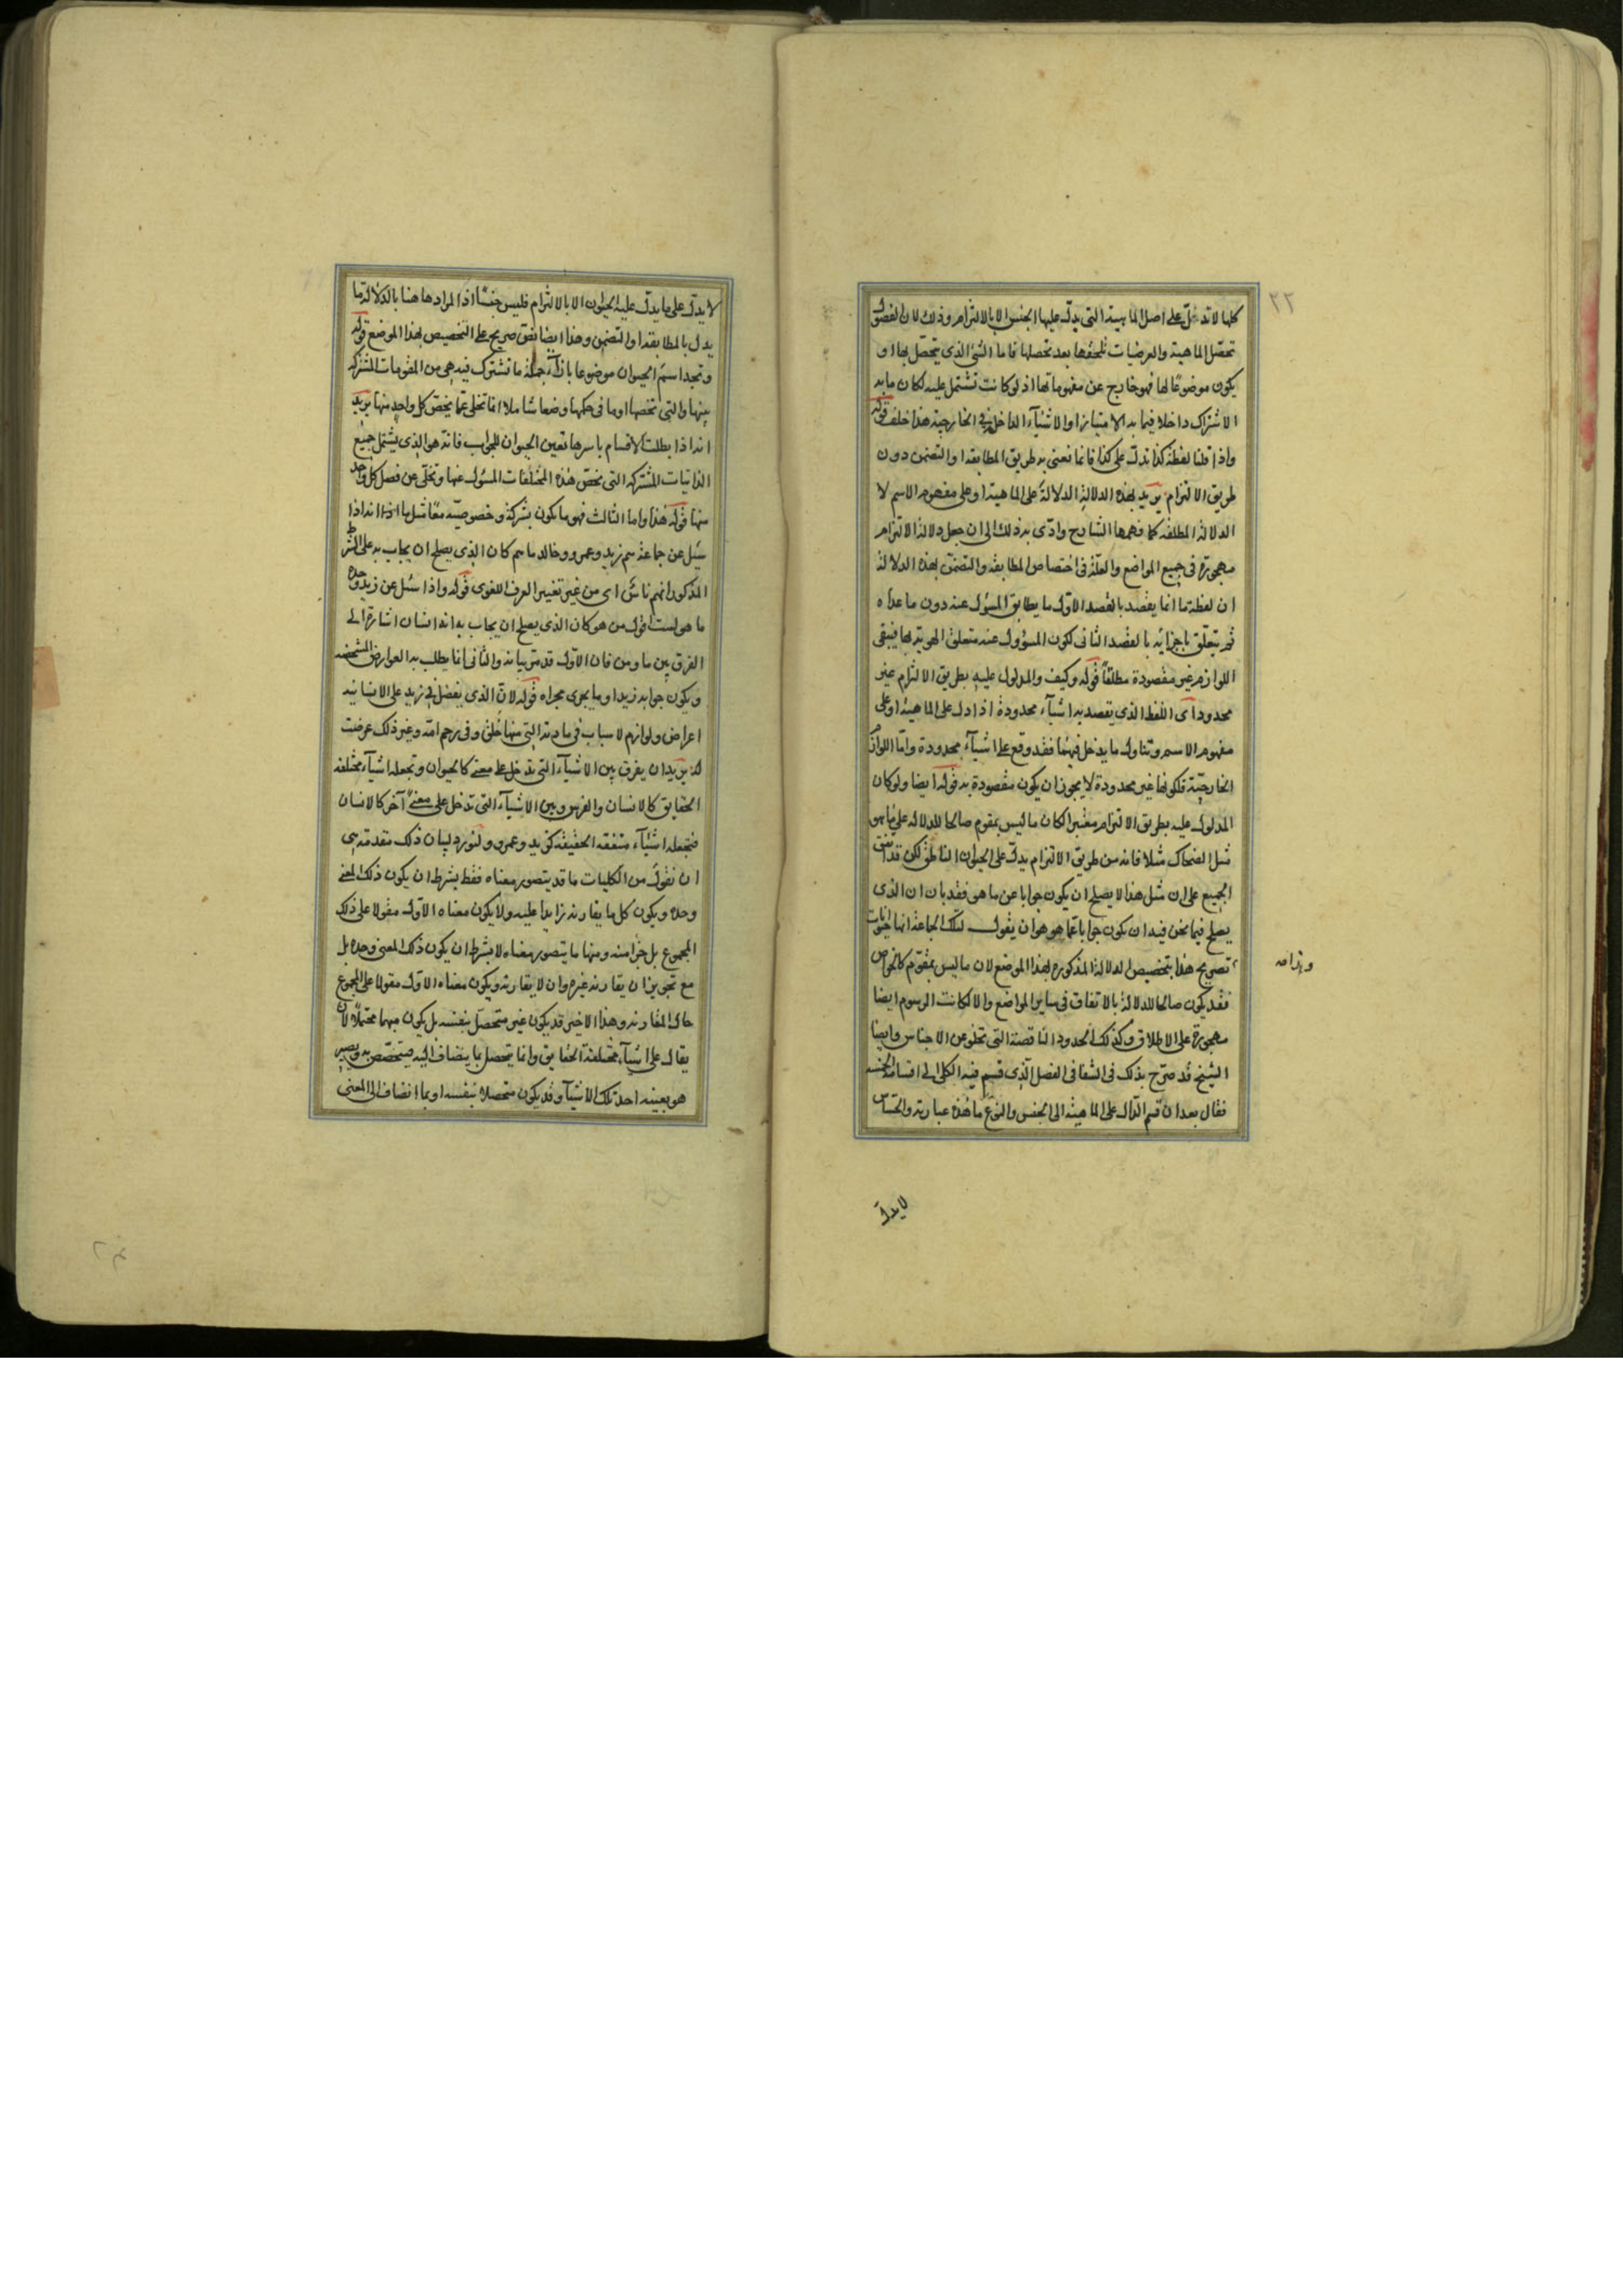 ٢٢
كلها لا تدل على اصل الماهية التى يدل عليها الجنس الا بالالتزام وذلك لان الفصول
تحصّل الماهية والعرضيات تلحقها بعد تحصلها فاما الشئ الذى يتحصّل بها او
يكون موضوعًا لها فهو خارج عن مفهوماتها اذ لو كانت تشتمل عليه لكان ما به
الاشتراك داخلا فيما به الامتياز والاشياء الداخلة فى الخارجية هذا خلف قوله
واذا قلنا لفظة كذا تدل على كذا فانما نعنى به طريق المطابقة او التضمن دون
طريق الالتزام يريد بهذه الدلالة الدلالة على الماهية او على مفهوم الاسم لا
الدلالة المطلقة كما فهمها الشارح وادّى به ذلك الى ان جعل دلالة الالتزام
مهجورة فى جميع المواضع والعلّة فى اختصاص المطابقة والتضمّن بهذه الدلالة
ان لفظة ما انما يقصد بالقصد الاول ما يطابق المسؤل عنه دون ما عداه
ثم يتعلّق باجزائه بالقصد الثانى لكون المسؤول عنه متعلق الهوية بها فيبقى
اللوازم غير مقصودة مطلقًا قوله وكيف والمدلول عليه بطريق الالتزام غير
محدود اى اللفظ الذى يقصد به اشياء محدودة اذا دل على الماهية او على
مفهوم الاسم وتناول ما يدخل فيهما فقد وقع على اشياء محدودة وامّا اللوازم
الخارجيّة فلكونها غير محدودة لا يجوز ان يكون مقصودة به قوله ايضا ولو كان
المدلول عليه بطريق الالتزام معتبرا لكان ما ليس بمقوم صالحا للدلالة على ما هو
مثل الضحاك مثلا فانه من طريق الالتزام يدل على الحيوان الناطق لكن قد اتفق
الجميع على ان مثل هذا لا يصلح ان يكون جوابا عن ما هو فقد بان ان الذى
يصلح فيما نحن فيه ان يكون جوابا عمّا هو هو ان يقول لتلك الجماعة انها حيوانات
تصريح هذا بتخصيص الدلالة المذكورة لهذا الموضع لان ما ليس بمقوّم كالخواص
وهذا صه
فقد يكون صالحا للدلالة بالاتفاق فى ساير المواضع والا لكانت الرسوم ايضا
مهجورة على الاطلاق وكذلك الحدود الناقصة التى تخلو عن الاجناس وايضا
الشيخ قد صرّح بذلك فى الشفا فى الفصل الذى قسم فيه الكلى الى اقسامه الخمسة
فقال بعد ان قسم الدّال على الماهية الى الجنس والنوع ما هذه عبارته والحسّاس
لا يدلّ
لا يدلّ على ما يدل عليه الحيوان الا بالالتزام فليس جنسًا اذ المراد هاهنا بالدلالة ما
يدل بالمطابقة او التضمن وهذا ايضا نص صريح على التخصيص بهذا الموضع قوله
وتجد اسم الحيوان موضوعا بازاء جملة ما تشترك فيه هى من المقومات المشتركة
بينها والتى تخصها او ما فى حكمها وضعا شاملا انما تخلى عمّا يخصّ كل واحد منها يريد
انه اذا بطلت الاقسام باسرها تعين الحيوان للجواب فانه هو الذى يشتمل جميع
الذاتيات المشتركة التى تخصّ هذه المختلفات المسؤل عنها وتخلّى عن فصل كل واحد
منها قوله هذا واما الثالث فهو ما يكون بشركة وخصوصيّة معًا مثل ما انه اذا
سُئل عن جماعة هم زيد وعمرو وخالد ما هم كان الذى يصلح ان يجاب به على الشرط
المذكور انهم ناس اى من غير تغيير العرف اللغوى قوله واذا سئل عن زيد وحده
ما هو لست اقول من هو كان الذى يصلح ان يجاب به انه انسان اشارة الى
الفرق بين ما ومن فان الاول قد مرّ بيانه والثانى انما يطلب به العوارض المشخصة
ويكون جوابه زيد او ما يجرى مجراه قوله لانّ الذى يفضل فى زيد على الانسانية
اعراض ولوازم لاسباب فى مادته التى منها خُلق وفى رحم امّه وغير ذلك عرضت
له يريد ان يفرق بين الاشياء التى تدخل على معنى كالحيوان وتجعله اشياء مختلفة
الحقايق كالانسان والفرس وبين الاشياء التى تدخل على معنى آخر كالانسان
فتجعله اشياء متفقة الحقيقة كزيد وعمرو ولنورد لبيان ذلك مقدمة هى
ان نقول من الكليات ما قد يتصور معناه فقط بشرط ان يكون ذلك المعنى
وحده ويكون كل ما يقارنه زايدا عليه ولا يكون معناه الاول مقولا على ذلك
المجموع بل جزءًا منه ومنها ما يتصور معناه لا بشرط ان يكون ذلك المعنى وحده بل
مع تجويز ان يقارنه غيره وان لا يقارنه ويكون معناه الاول مقولا على المجموع
حال المقارنة وهذا الاخير قد يكون غير متحصّل بنفسه بل يكون مبهما محتملًا لان
يقال على اشياء مختلفة الحقايق وانما يتحصل بما ينضاف اليه فيتخصّص به ويصير
هو بعينه احد تلك الاشياء وقد يكون متحصلا بنفسه او بما انضاف الى المعنى